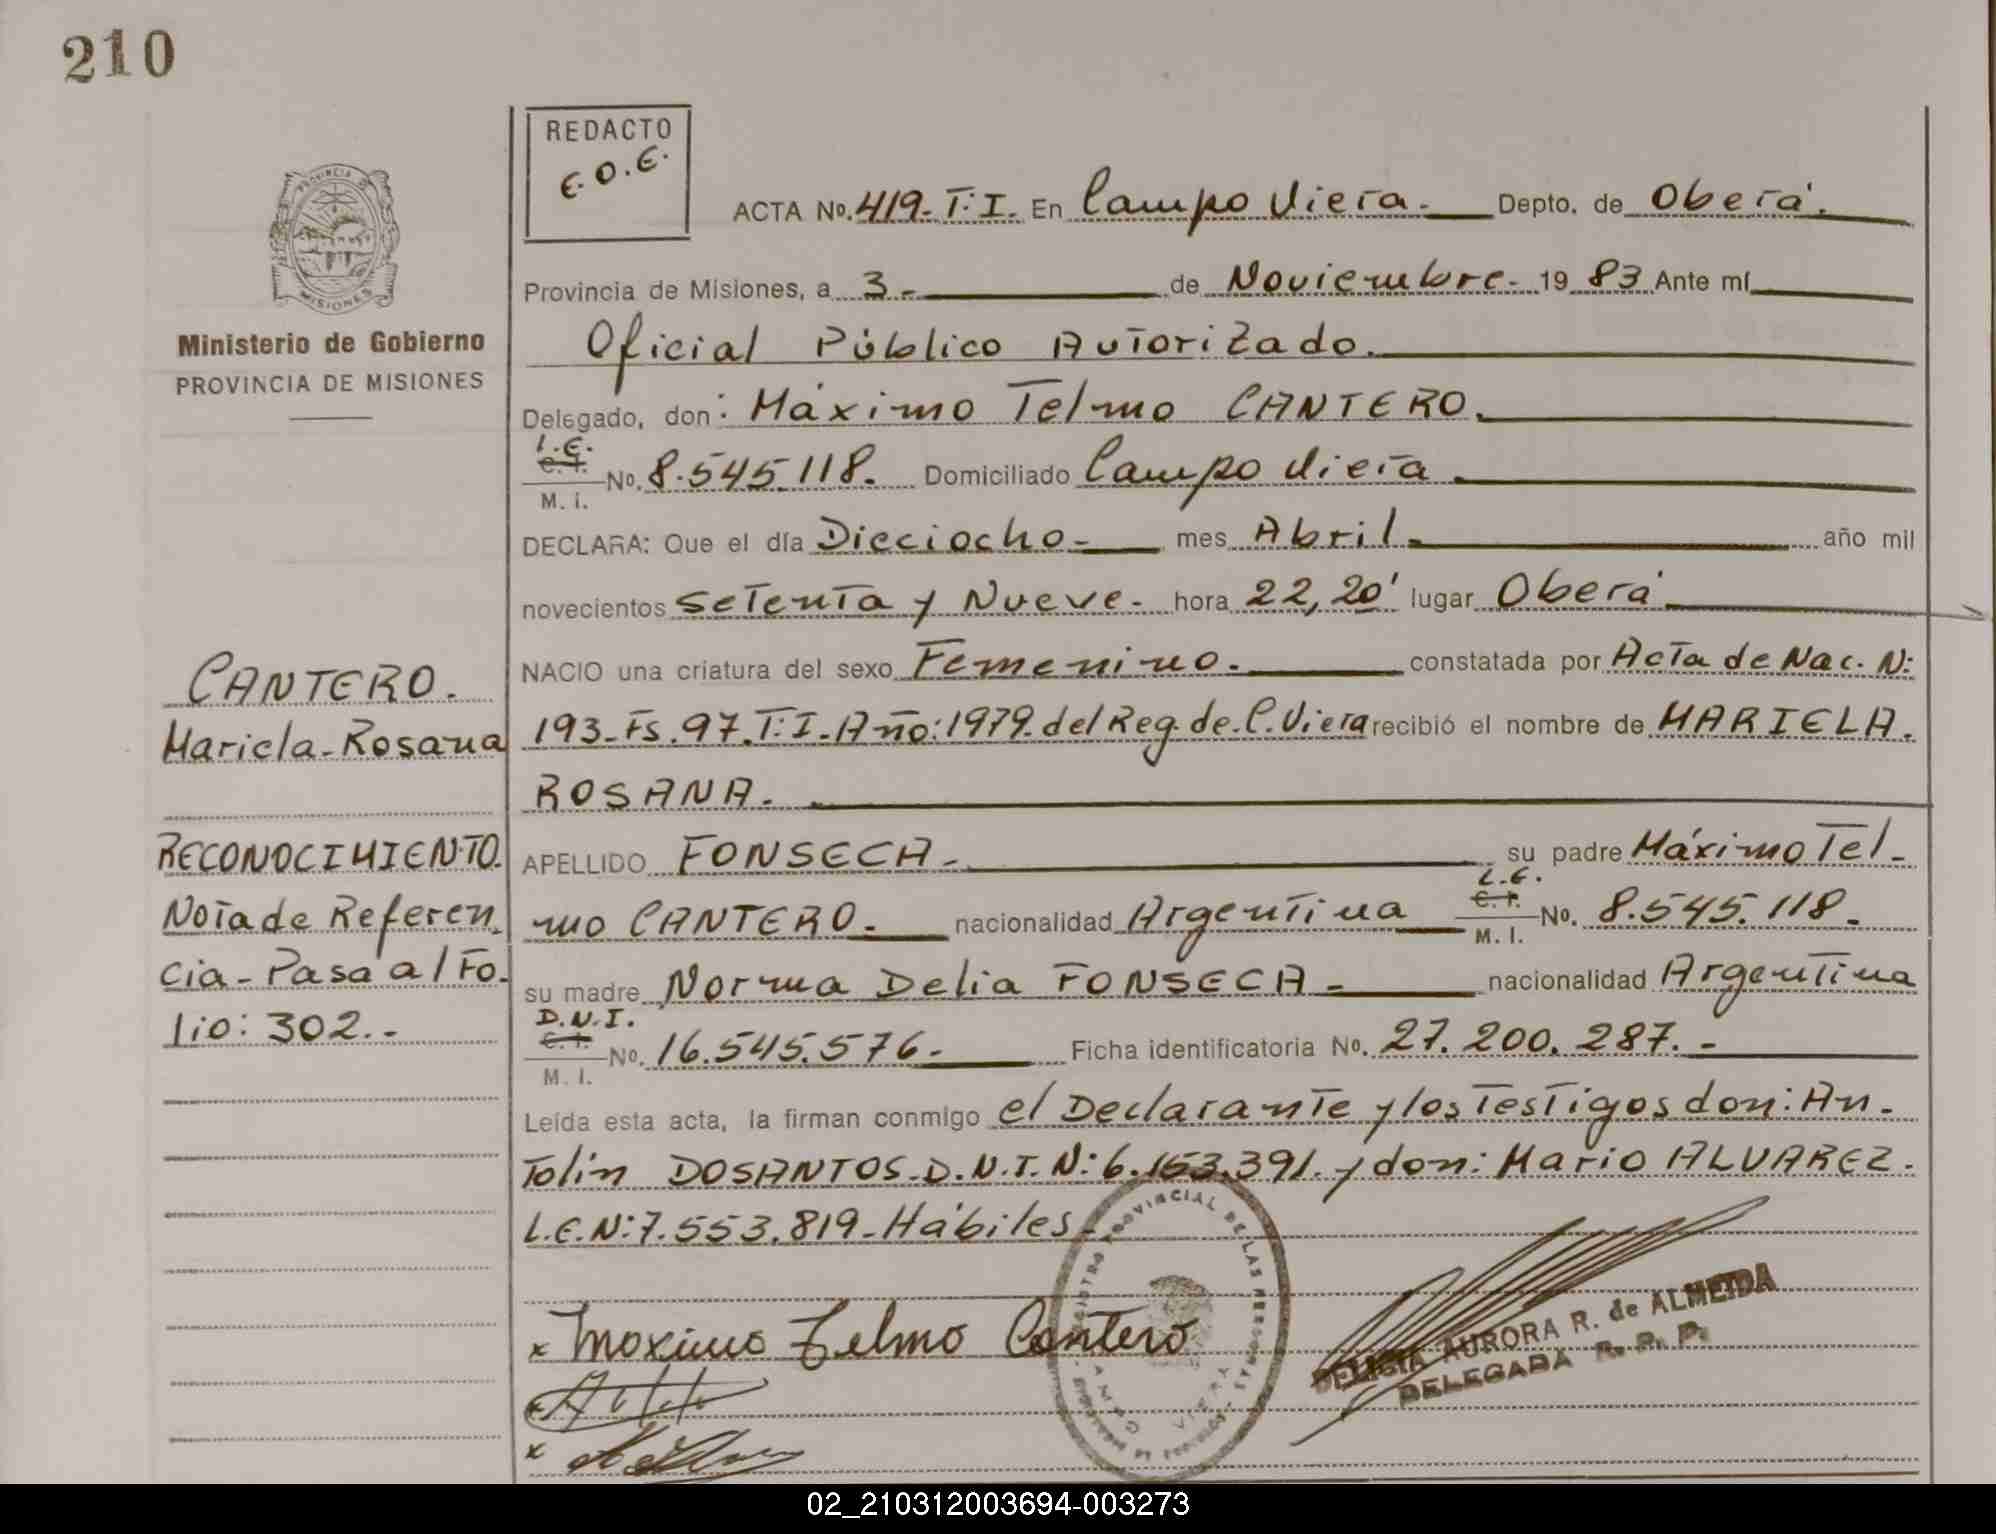 210
REDACTO
E.O.E.
PROVINCIA DE
MISIONES
Ministerio de Gobierno
PROVINCIA DE MISIONES
ACTA No. 419- T:I. En Campo Viera.- Depto. de Oberá.
Provincia de Misiones, a 3.- de Noviembre.- 19 83 Ante mí
Oficial Público Autorizado.
Delegado, don: Máximo Telmo CANTERO.
L.E.
C. I.
M. I.
No. 8.545.118. Domiciliado Campo Viera
DECLARA: Que el día Dieciocho.- mes Abril.- año mil
novecientos setenta y Nueve.- hora 22,20' lugar Oberá
NACIO una criatura del sexo Femenino.- constatada por Acta de Nac. N:
193-Fs.97.T:I-Año:1979.del Reg.de.C.Viera recibió el nombre de MARIELA.
ROSANA.-
APELLIDO FONSECA.- su padre Máximo Tel-
mo CANTERO.- nacionalidad Argentina
L.E.
C. I.
M. I.
No. 8.545.118.-
su madre Norma Delia FONSECA- nacionalidad Argentina
D.N.I.
C. I.
M. I.
No. 16.545.576.- Ficha identificatoria No. 27.200.287.-
Leída esta acta, la firman conmigo el Declarante y los Testigos don: An-
Tolín DOSANTOS.D.N.I.N:6.153.391.y don: Mario ALVAREZ.
L.E.N:7.553.819-Hábiles-
CANTERO.
Mariela-Rosana
RECONOCIMIENTO.
Nota de Referen
cia-Pasa al Fo-
lio: 302.-
x Maximo Telmo Cantero
x
REGISTRO PROVINCIAL DE LAS PERSONAS
CAMPO VIERA
DELICIA AURORA R. de ALMEIDA
DELEGADA R. P. P.
02_210312003694-003273